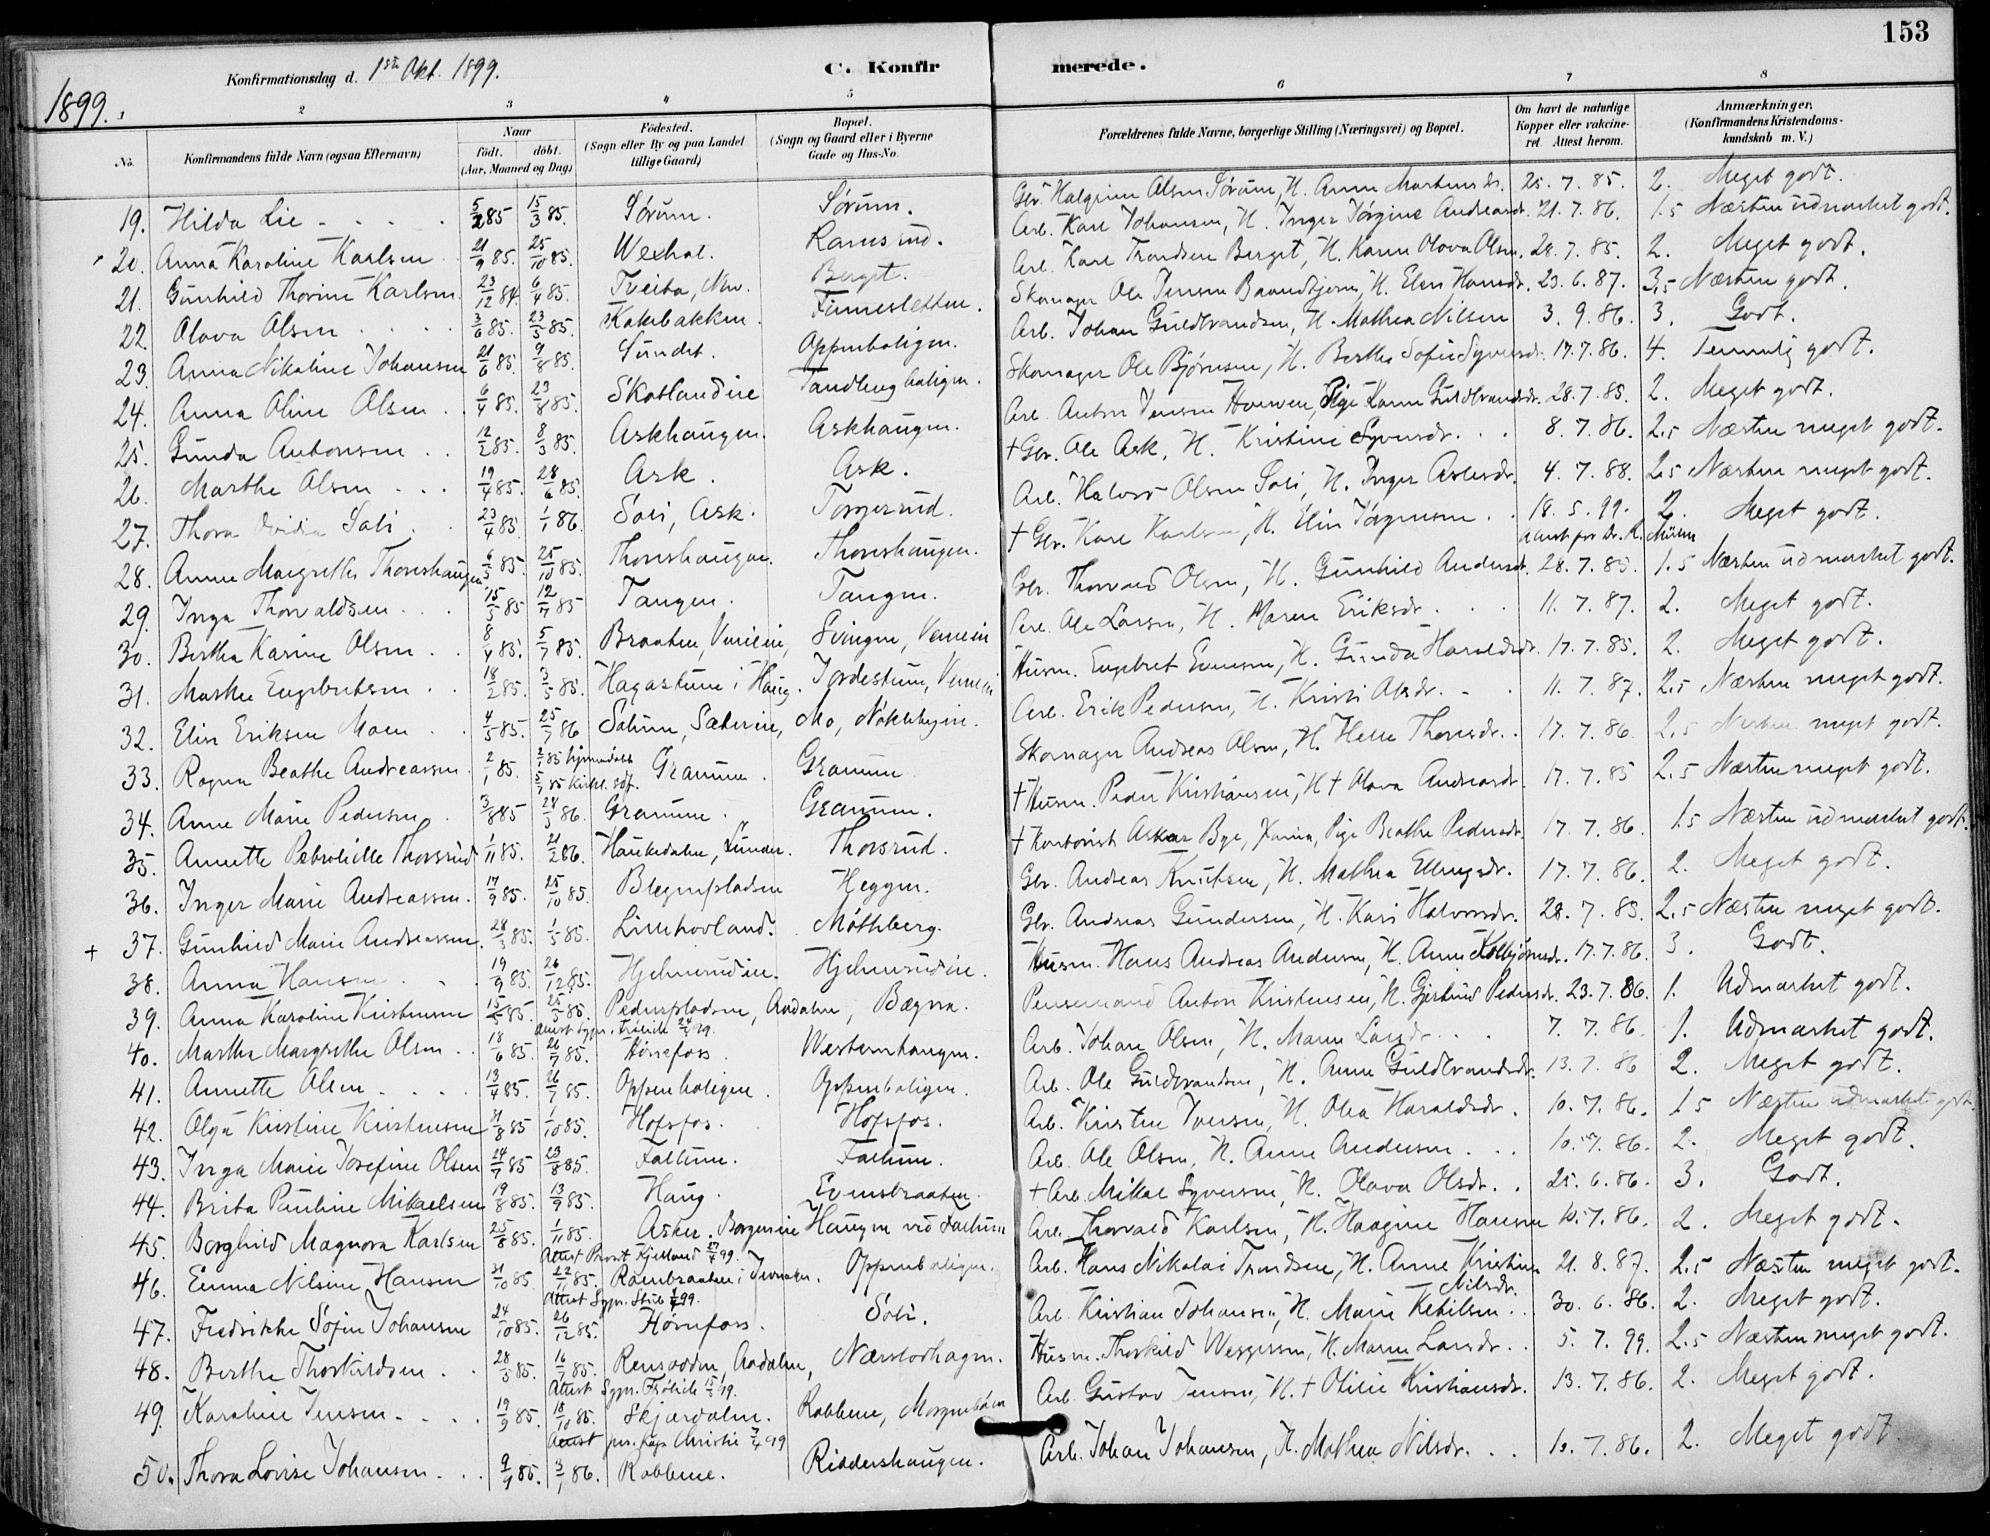 153
Konfirmationsdag d. 1ste Okt. 1899.
C. Konfirmerede.
1899.
1 2 3 4 5 6 7 8
No. Konfirmandens fulde Navn (ogsaa Efternavn) Naar født. døbt. (Aar, Maaned og Dag) Fødested. (Sogn eller By og paa Landet tillige Gaard) Bopæl. (Sogn og Gaard eller i Byerne Gade og Hus-No. Forældrenes fulde Navne, borgerlige Stilling (Næringsvei) og Bopæl. Om havt de naturlige Kopper eller vakcineret. Attest herom. Anmærkninger. (Konfirmandens Kristendomskundskab m. V.)
19. Hilda Lie 5/2 85 15/3 85. Sørum. Sørum. Gbr. Halgrim Olsen Sørum, H. Anne Martinsdr. 25. 7. 85. 2. Meget godt.
20. Anna Karoline Karlsen 21/9 85. 25/10 85. Wexhal. Ramsrud. Arb. Karl Johansen, H. Inger Jørgine Andreasdr. 21. 7. 86. 1.5 Næsten udmærket godt.
21. Gunhild Thorine Karlsen. 23/12 84. 6/4 85. Berget. Arb. Karl Trondsen Berget, H. Karen Olava Olsen. 28. 7. 85. 2. Meget godt.
22. Olava Olsen 3/6 85. 23/5 85. Kakebakken. Finnesletten. Skomager Ole Jensen H. Elen Hansdr. 23. 6. 87. 3.5 Næsten godt.
23. Anna Nikoline Johansen 21/6 85. 9/8 85. Sundet. Oppenboligen. Arb. Johan Guldbrandsen, H. Mathea Nilsen 3. 9. 86. 3. Godt.
24. Anna Oline Olsen 6/4 85. 23/8 85. Skotlandeie Skomager Ole Bjørnsen, H. Berthe Sofie Syversdr. 17. 7. 86. 4. Temmelig godt.
25. Gunda Antonsen 12/2 85. 8/3 85. Askhaugen. Askhaugen. Arb. Anton Jensen Hverven, Pige Karen Guldbrandsdr. 28. 7. 85. 2. Meget godt.
26. Marthe Olsen 19/4 85. 28/6 85. Ask. Ask. † Gbr. Ole Ask, H. Kristine Syversdr. 8. 7. 86. 2.5 Næsten meget godt.
27. Thora Ovidia Soli 23/4 85. 1/1 86. Soli, Ask. Torgersrud. Arb. Halvor Olsen Soli, H. Inger Aslesdr. 4. 7. 88. 2.5 Næsten meget godt.
28. Anne Margrethe Thoreshaugen 6/5 85. 25/10 85. Thoreshaugen. Thoreshaugen. † Gbr. Karl Karlsen, H. Elin Jørgensen 18. 5. 99. 2. Meget godt.
29. Inga Thorvaldsen 15/5 85 12/7 85 Tangen. Tangen. Gbr. Thorvald Olsen, H. Gunhild Andersdr. 28. 7. 85. 1.5 Næsten udmærket godt.
30. Bertha Karine Olsen 8/4 85. 5/7 85. Braaten, Veneie, Svingen, Veneie Arb. Ole Larsen, H. Maren Eriksdr. 11. 7. 87. 2. Meget godt.
31. Marthe Engebretsen 18/2 85. 3/5 85. Hagastuen i Haug. Jordestuen, Veneie Husm. Engebret Evensen, H. Gunda Haraldsdr. 17. 7. 85. 2. Meget godt.
32. Elise Eriksen Moen 4/5 85. 25/7 86 Mo, Arb. Erik Pedersen, H. Kristi Olsdr. 11. 7. 87. 2.5 Næsten meget godt.
33. Ragna Beathe Andreassen 2/1 85. Granum. Granum Skomager Andreas Olsen, H. Helle Thoresdr. 17. 7. 86. 2.5 Næsten meget godt.
34. Anne Marie Pedersen 3/8 85 Granum. Granum. † Husm. Peder Kristiansen, H. † Olava Andreasdr. 17. 7. 85 2.5 Næsten meget godt.
35. Annette Petronille Thorsrud 1/11 85. 21/2 86. Haukedalen, Lunder. Thorsrud. † Kontorist Askar Bye, Xania, Pige Beathe Pedersdr. 17. 7. 86. 1.5 Næsten udmærket godt.
36. Inger Marie Andreassen. 17/9 85. 25/10 85. Blegenpladsen Heggen. Gbr. Andreas Knutsen, H. Mathea Ellingsdr. 17. 7. 86. 2. Meget godt.
+ 37. Gunhild Marie Andreassen 28/3 85. 1/5 85. Limhovland. Møthberg. Gbr. Andreas Gundersen, H. Kari Halvorsdr. 28. 7. 85. 2.5 Næsten meget godt.
38. Anna Hansen 19/9 85. 26/12 85. Hjelmerudeie. Hjelmerudeie. Husm. Hans Andreas Andersen, H. Anne Kolbjørnsdr. 17. 7. 86. 3. Godt.
39. Anna Karoline Kristensen 15/5 85. 25/5 85. Pederspladsen, Aadalen, Bægna. Anton Kristensen, H. Gjertrud Pedersdr. 23. 7. 86. 1. Udmærket godt.
Attest Sgpr. Frølich 24/4 99.
40. Marthe Margrethe Olsen 18/6 85. 26/7 85. Hønefoss. Westernhaugen. Arb. Johan Olsen, H. Maren Larsdr. 7. 7. 86. 1. Udmærket godt.
41. Annette Olsen 13/4 85. 26/7 85. Oppenboligen. Oppenboligen. Arb. Ole Guldbrandsen, H. Anne Guldbrandsdr. 13. 7. 86 2. Meget godt.
42. Olga Kristine Kristensen 31/8 85 1/10 85. Hofsfos. Hofsfos. Arb. Kristen Iversen, H. Olea Haraldsdr. 10. 7. 86. 1.5 Næsten udmærket godt.
43. Inga Marie Josefine Olsen 24/7 85 23/8 85. Follum. Follum. Arb. Ole Olsen, H. Anne Andersen 10. 7. 86. 2. Meget godt.
44. Brita Pauline Mikaelsen 19/8 85. 13/9 85. Haug. Evensbraaten. † Arb. Mikal Syversen, H. Olava Olsdr. 25. 6. 86. 3. Godt.
45. Borghild Magnora Karlsen 25/8 85. 1/11 85. Asker. Borgerseie Haugen ved Follum Arb. Thorvald Karlsen, H. Haagine Hansen 10. 7. 86. 2. Meget godt.
46. Emma Nilsine Hansen 31/10 85. 22/11 85. Rambraaten i Jevnaker. Oppenboligen. Arb. Hans Nikolai Trondsen, H. Anne Kristine Nilsdr. 21. 8. 87. 2.5 Næsten meget godt.
47. Fredrikke Sofie Johansen 24/10 85. 26/12 85. Hønefoss. Soli. Arb. Kristian Johansen, H. Marie Ketilsen 30. 6. 86. 2. Meget godt.
48. Berthe Thorkildsen 28/5 85. 16/7 85. Rensvodden, Aadalen, Arb. Husm. Thorkild H. Maren Larsdr. 5. 7. 99. 2.5 Næsten meget godt.
Attest Sgpr. Frølich
49. Karoline Jensen 19/9 85. 18/10 85. Skjærdalen. Robbene, Arb. Gustav Jensen, H. † Otilie Kristiansdr. 13. 7. 86. 2. Meget godt.
Attest pers. Kap. Christie
50. Thora Lovise Johansen 9/9 85. 3/1 86. Robbene. Riddershaugen. Arb. Johan Johansen, H. Mathea Nilsdr. 10. 7. 86. 2. Meget godt.